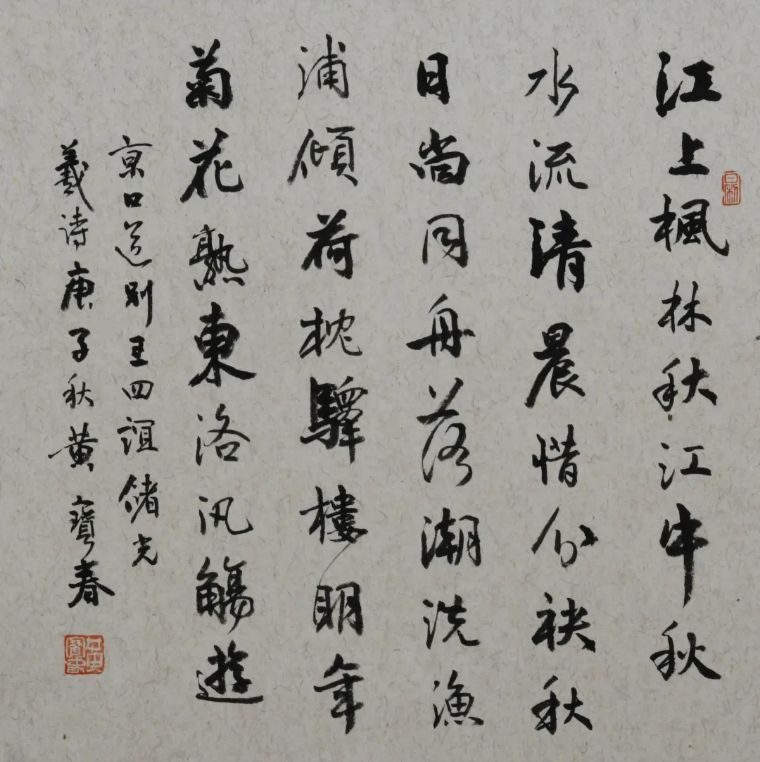 江上楓林秋江中秋
水流清晨惜分袂秋
日尚同舟落潮洗漁
浦傾荷枕驛樓明年
菊花熟東洛汎觴遊
京口送别王四誼儲光
羲诗庚子秋黄寶春